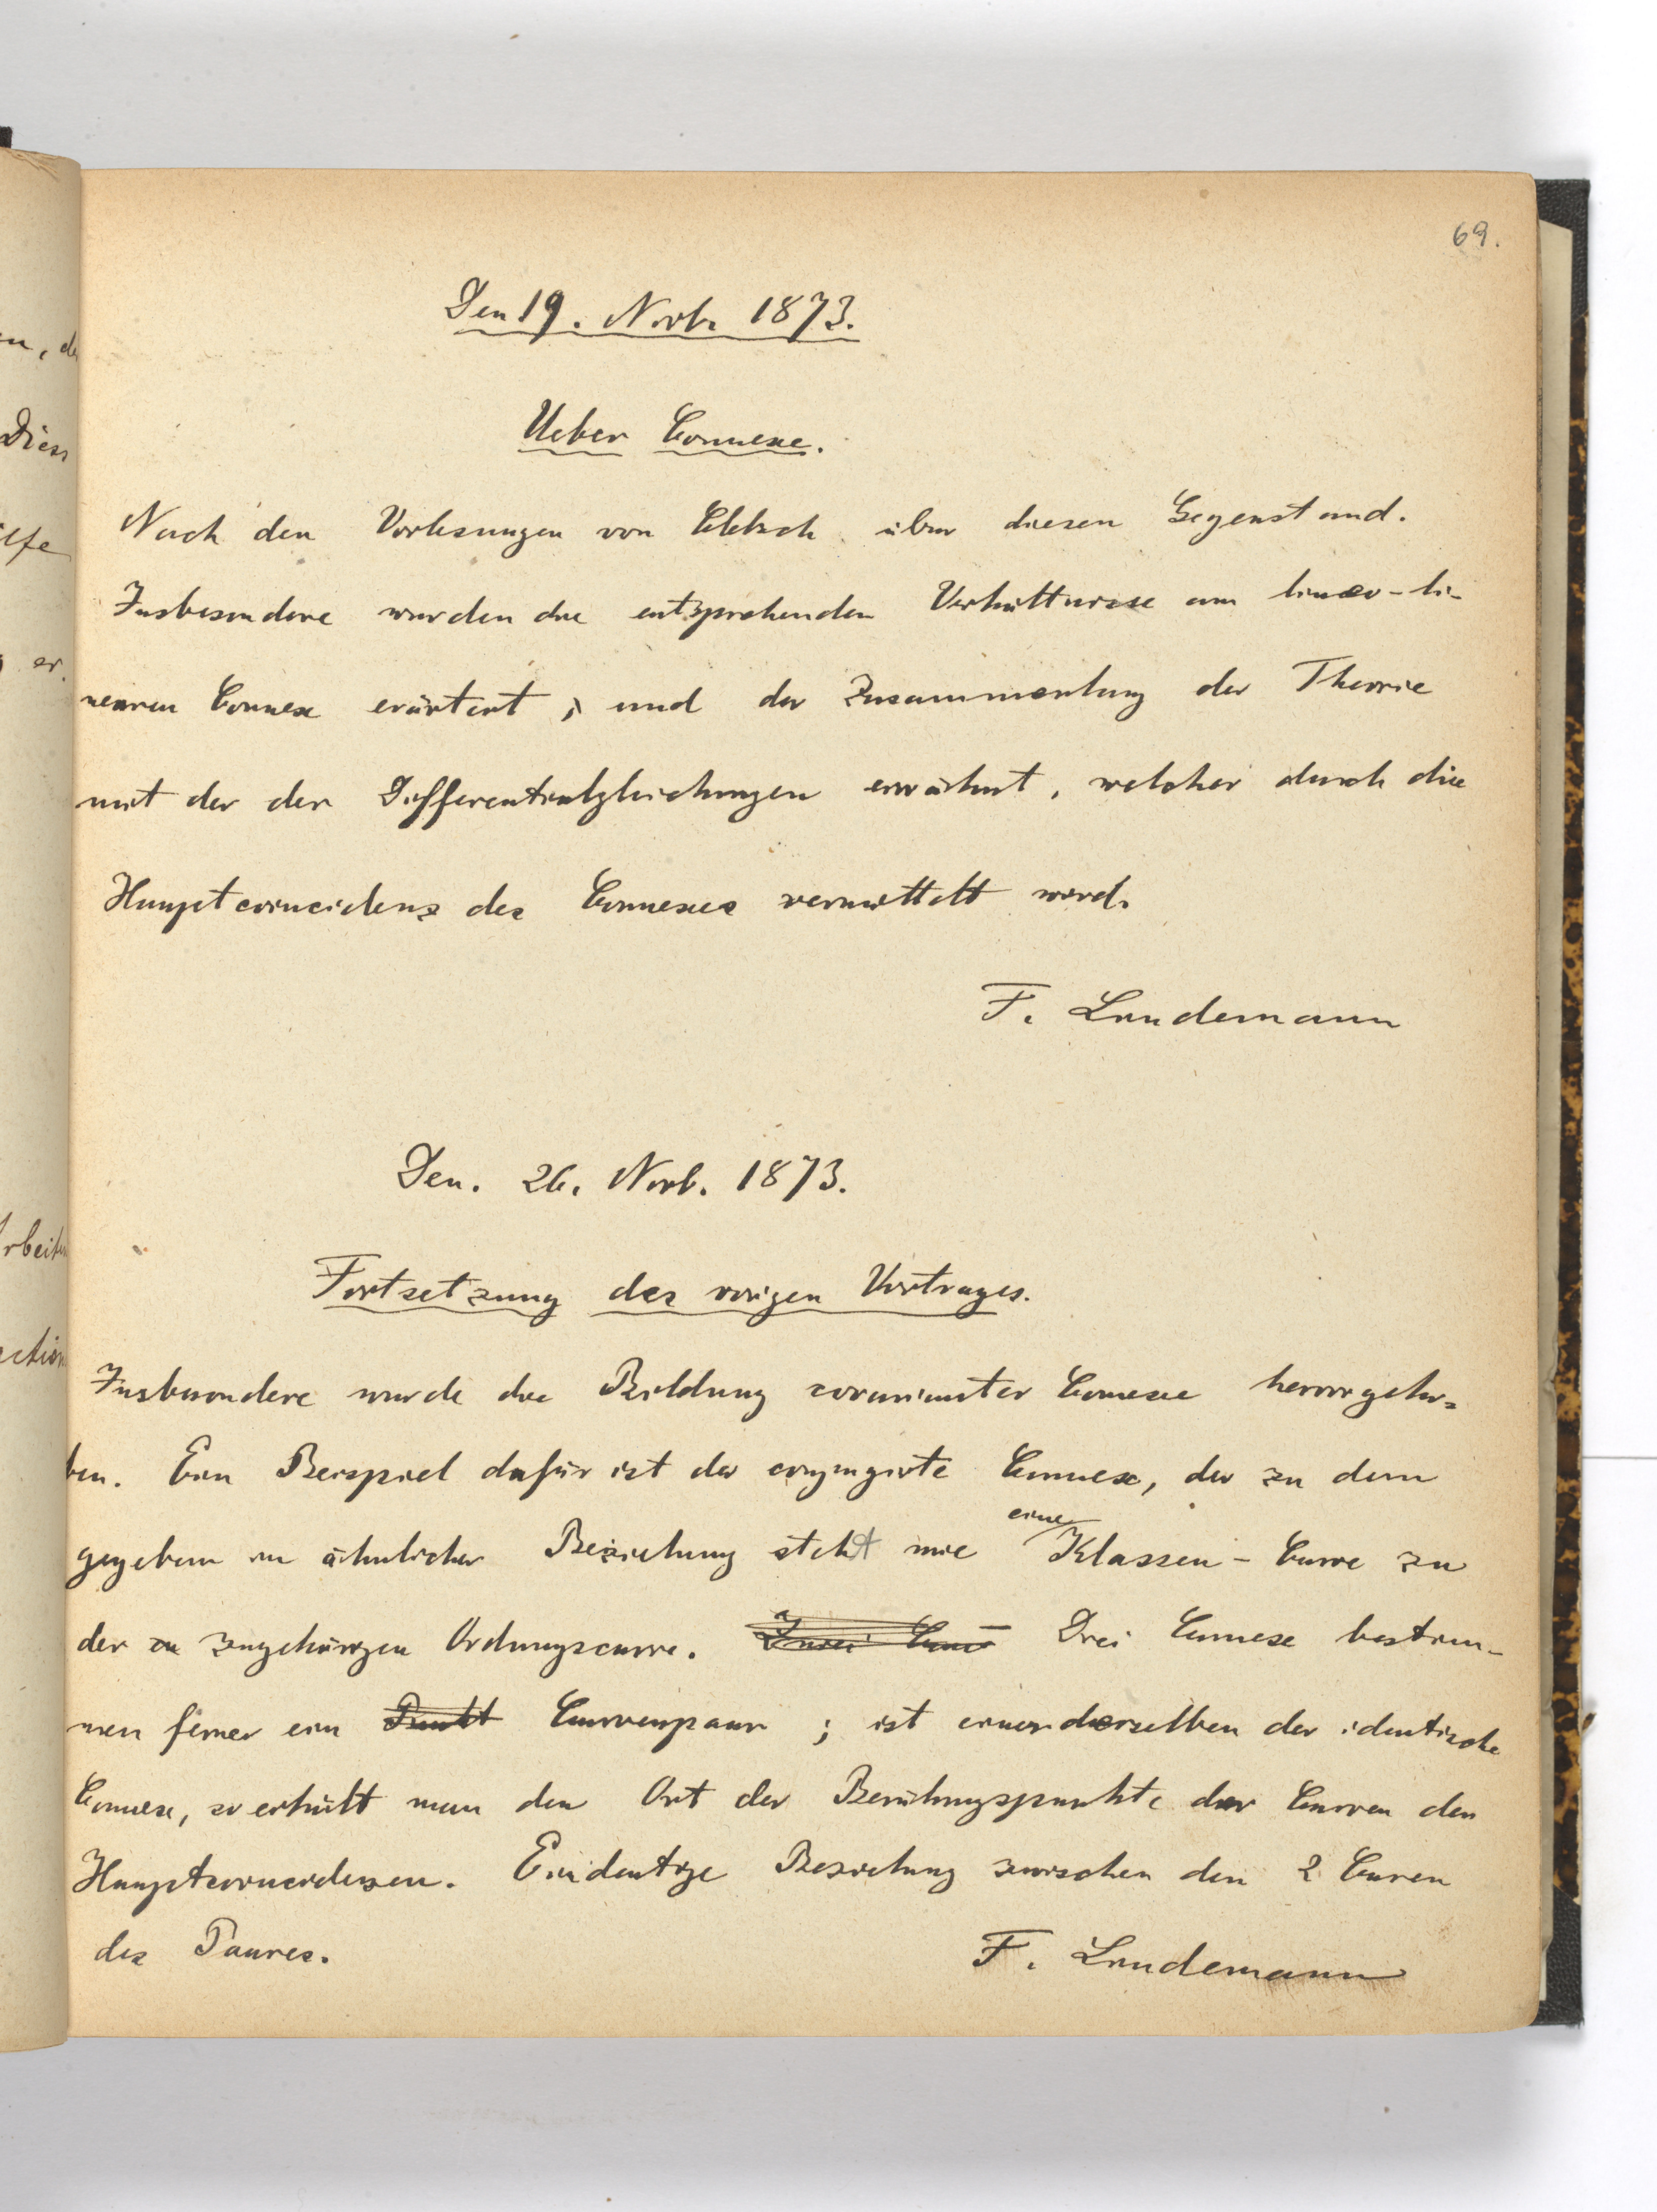 69.
Den 19. Novb. 1873.
Ueber Connexe.
Nach den Vorlesungen von Clebsch über diesen Gegenstand.
Insbesondere wurden die entsprechenden Verhältnisse am linear-li-
nearen Connex erörtert, und der Zusammenhang der Theorie
mit der der Differentialgleichungen erwähnt, welcher durch die
Hauptcoincidenz des Connexes vermittelt wird.
F. Lindemann
Den. 26. Novb. 1873.
Fortsetzung des vorigen Vortrages.
Insbesondere wurde die Bildung covarianter Connexe hervorgeho-
ben. Ein Beispiel dafür ist der conjugirte Connex, der zu dem
gegebenen in ähnlicher Beziehung steht wie eine Klassen-Curve zu
der zugehörigen Ordnungscurve. Zwei Conne Drei Connexe bestim-
men ferner ein Punkt Curvenpaar; ist einer derselben der identische
Connex, so erhält man den Ort der Berührungspunkte der Curven der
Hauptcoincidenzen. Eindeutige Beziehung zwischen den 2 Curven
des Paares.
F. Lindemann
en, de
Diess
er.
Arbeiten